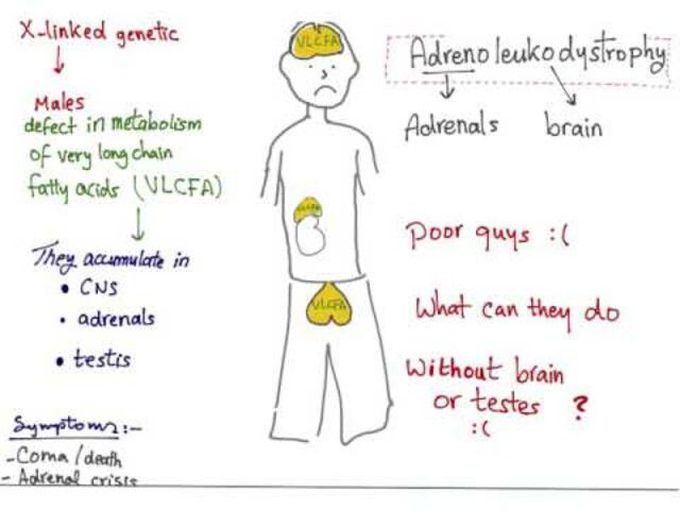 X-linked genetic
Males
defect in metabolism
of very long chain
fatty acids (VLCFA)
They accumulate in
• CNS
• adrenals
• testis
Symptoms:-
- Coma/death
- Adrenal crisis
VLCFA
VLCFA
VLCFA
Adrenoleukodystrophy
Adrenals brain
Poor guys :(
What can they do
Without brain
or testes ?
:(